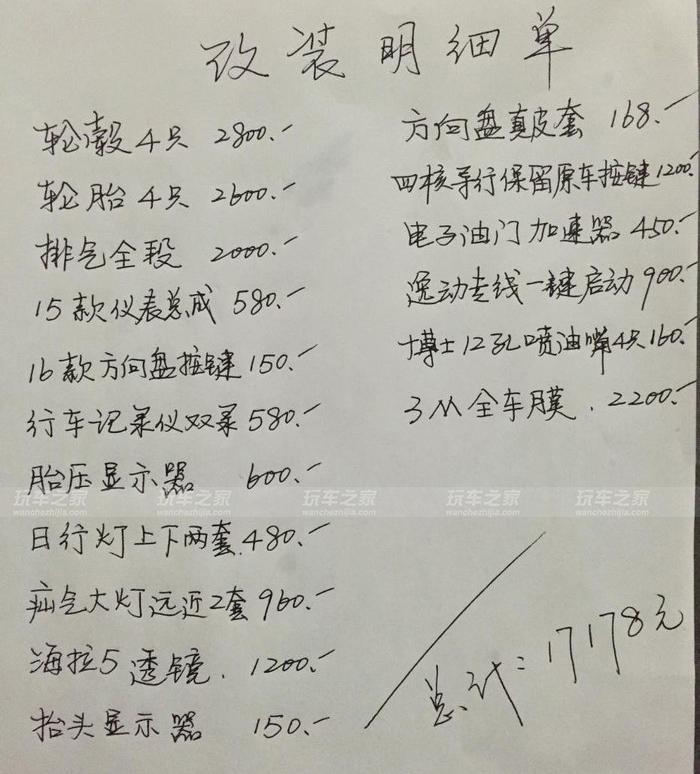 改装明细单
轮毂4只 2800.-
轮胎4只 2600.-
排气全段 2000.-
15款仪表总成 580.-
16款方向盘按键 150.-
行车记录仪双录 580.-
胎压显示器 600.-
日行灯上下两套 480.-
疝气大灯远近2套 960.-
海拉5透镜. 1200.-
抬头显示器 150.-
方向盘真皮套 168.-
四核导行保留原车按键 1200.-
电子油门加速器 450.-
逸动专线一键启动 900.-
博士12孔喷油嘴4只 160.-
3M全车膜. 2200.-
总计: 17178元
玩车之家 玩车之家 玩车之家 玩车之家 玩车之家
wanchezhijia.com wanchezhijia.com wanchezhijia.com wanchezhijia.com wanchezhijia.com